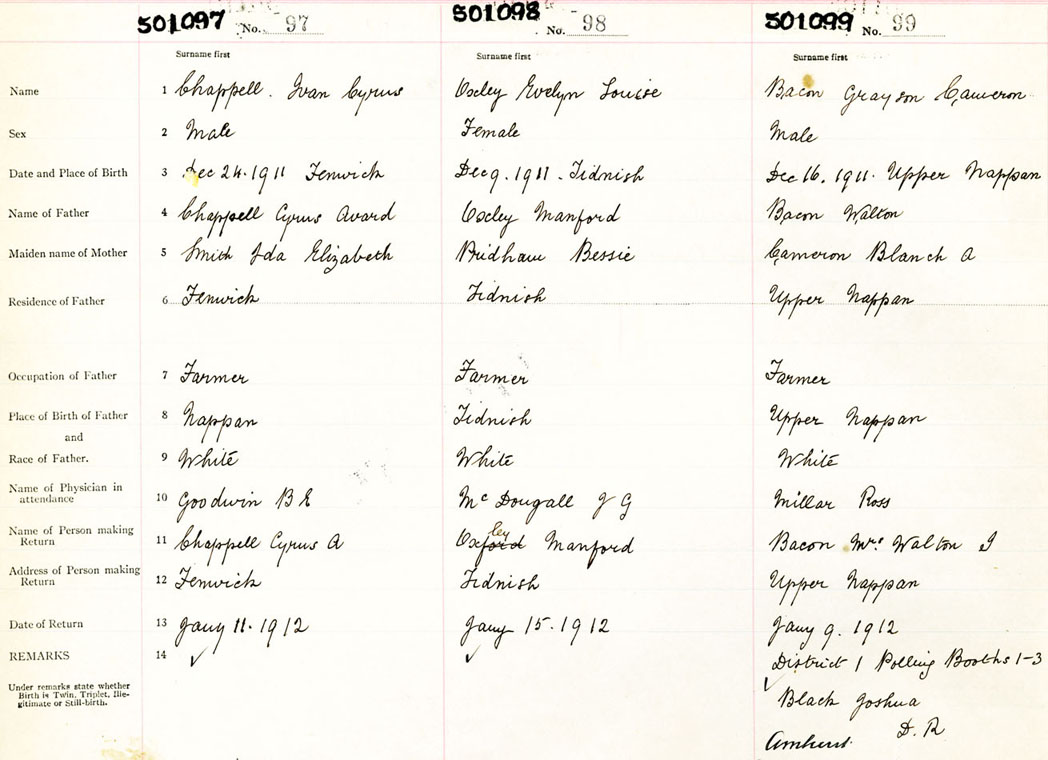 501097 No. 97 501098 No. 98 501099 No. 99
Surname first Surname first Surname first
Name 1 Chappell. Ivan Cyrus Oxley Evelyn Louise Bacon Grayson Cameron
Sex 2 Male Female Male
Date and Place of Birth 3 Dec 24. 1911 Fenwick Dec 9. 1911 - Tidnish Dec 16. 1911. Upper Nappan
Name of Father 4 Chappell Cyrus Avard Oxley Manford Bacon Walton
Maiden name of Mother 5 Smith Ida Elizabeth Pridham Bessie Cameron Blanch A
Residence of Father 6 Fenwick Tidnish Upper Nappan
Occupation of Father 7 Farmer Farmer Farmer
Place of Birth of Father 8 Nappan Tidnish Upper Nappan
and
Race of Father. 9 White White White
Name of Physician in
attendance 10 Goodwin B E Mc Dougall J G Millar Ross
Name of Person making
Return 11 Chappell Cyrus A Oxford ley Manford Bacon Mrs Walton I
Address of Person making
Return 12 Fenwick Tidnish Upper Nappan
Date of Return 13 Jany 11. 1912 Jany 15. 1912 Jany 9. 1912
REMARKS 14 ✓ ✓ District 1 Polling Booths 1-3
Under remarks state whether
Birth is Twin, Triplet, Ille-
gitimate or Still-birth.
✓ Black Joshua
D. R
Amherst.